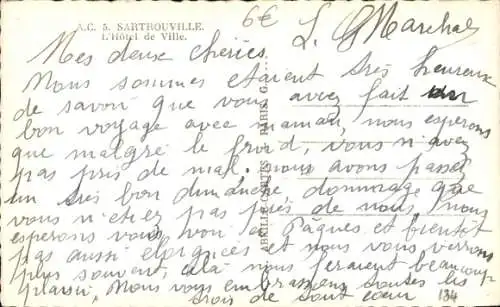 A.C. 5. SARTROUVILLE.
L'Hôtel de Ville.
6€
L. Marchal
Mes deux chéries
Nous sommes etaient très heureux
de savoir que vous avez fait un
bon voyage avec maman, nous esperons
que malgré le froid, vous n'avez
pas pris de mal. nous avons passer
un très bon dimanche dommage que
vous n'etiez pas près de nous, nous
esperons vous voir a Pâques et bientôt
pas aussi eloignées et nous vous verrons
plus souvent, celà nous feraient beaucoup
plaisir, Nous vous embrassons toutes les
trois de tout cœur
134
ABEILLE-CARTES PARIS